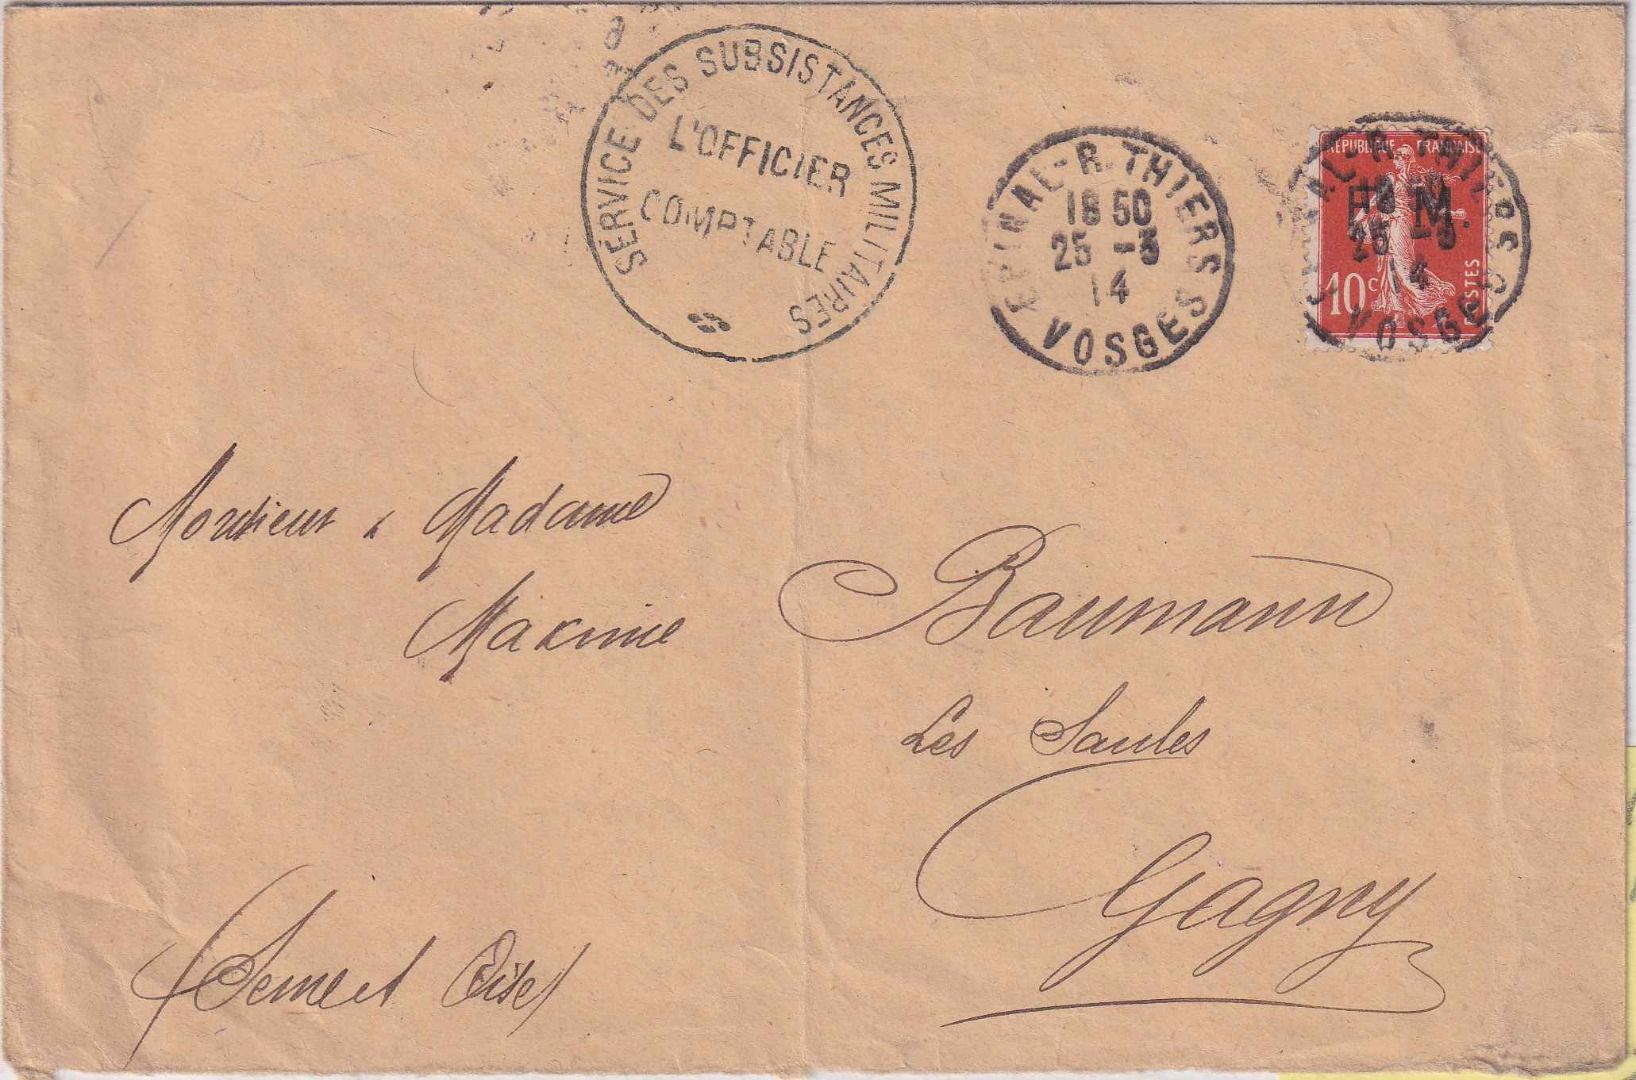 SERVICE DES SUBSISTANCES MILITAIRES
L'OFFICIER
COMPTABLE
EPINAL-R. THIERS
18 50
25 -3
14
VOSGES
REPUBLIQUE FRANÇAISE
F. M.
10c
POSTES
EPINAL-R. THIERS
25 -3
14
VOSGES
Monsieur & Madame
Maxime
Baumann
Les Saules
Gagny
(Seine et Oise)